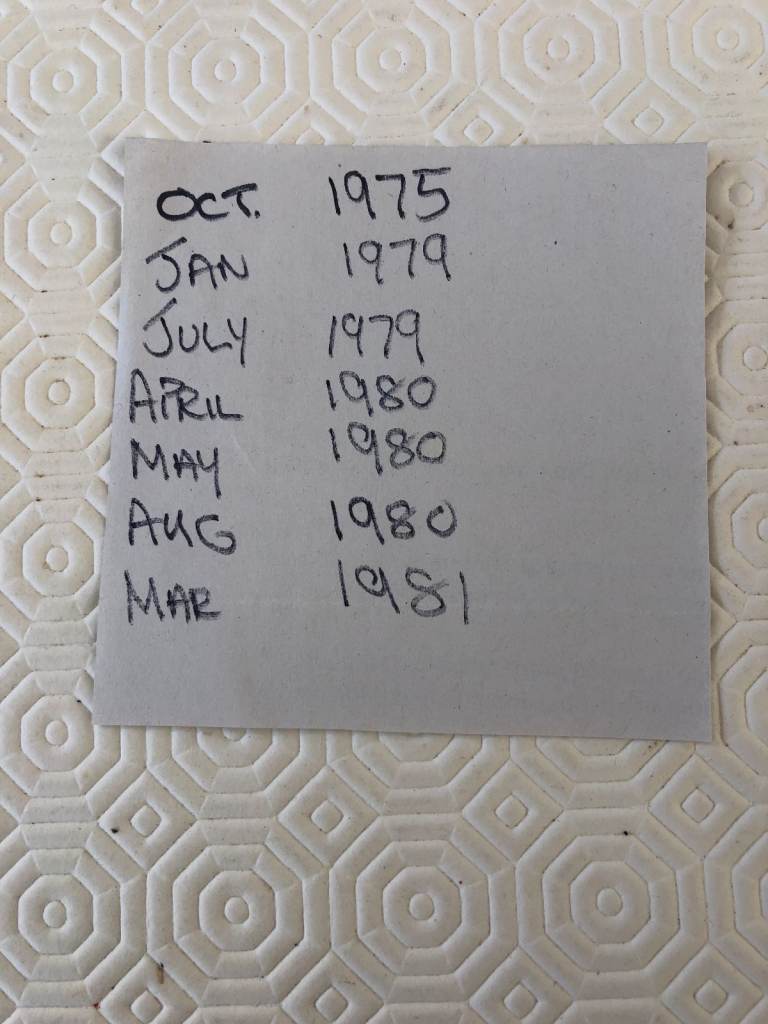 OCT. 1975
JAN 1979
JULY 1979
APRIL 1980
MAY 1980
AUG 1980
MAR 1981